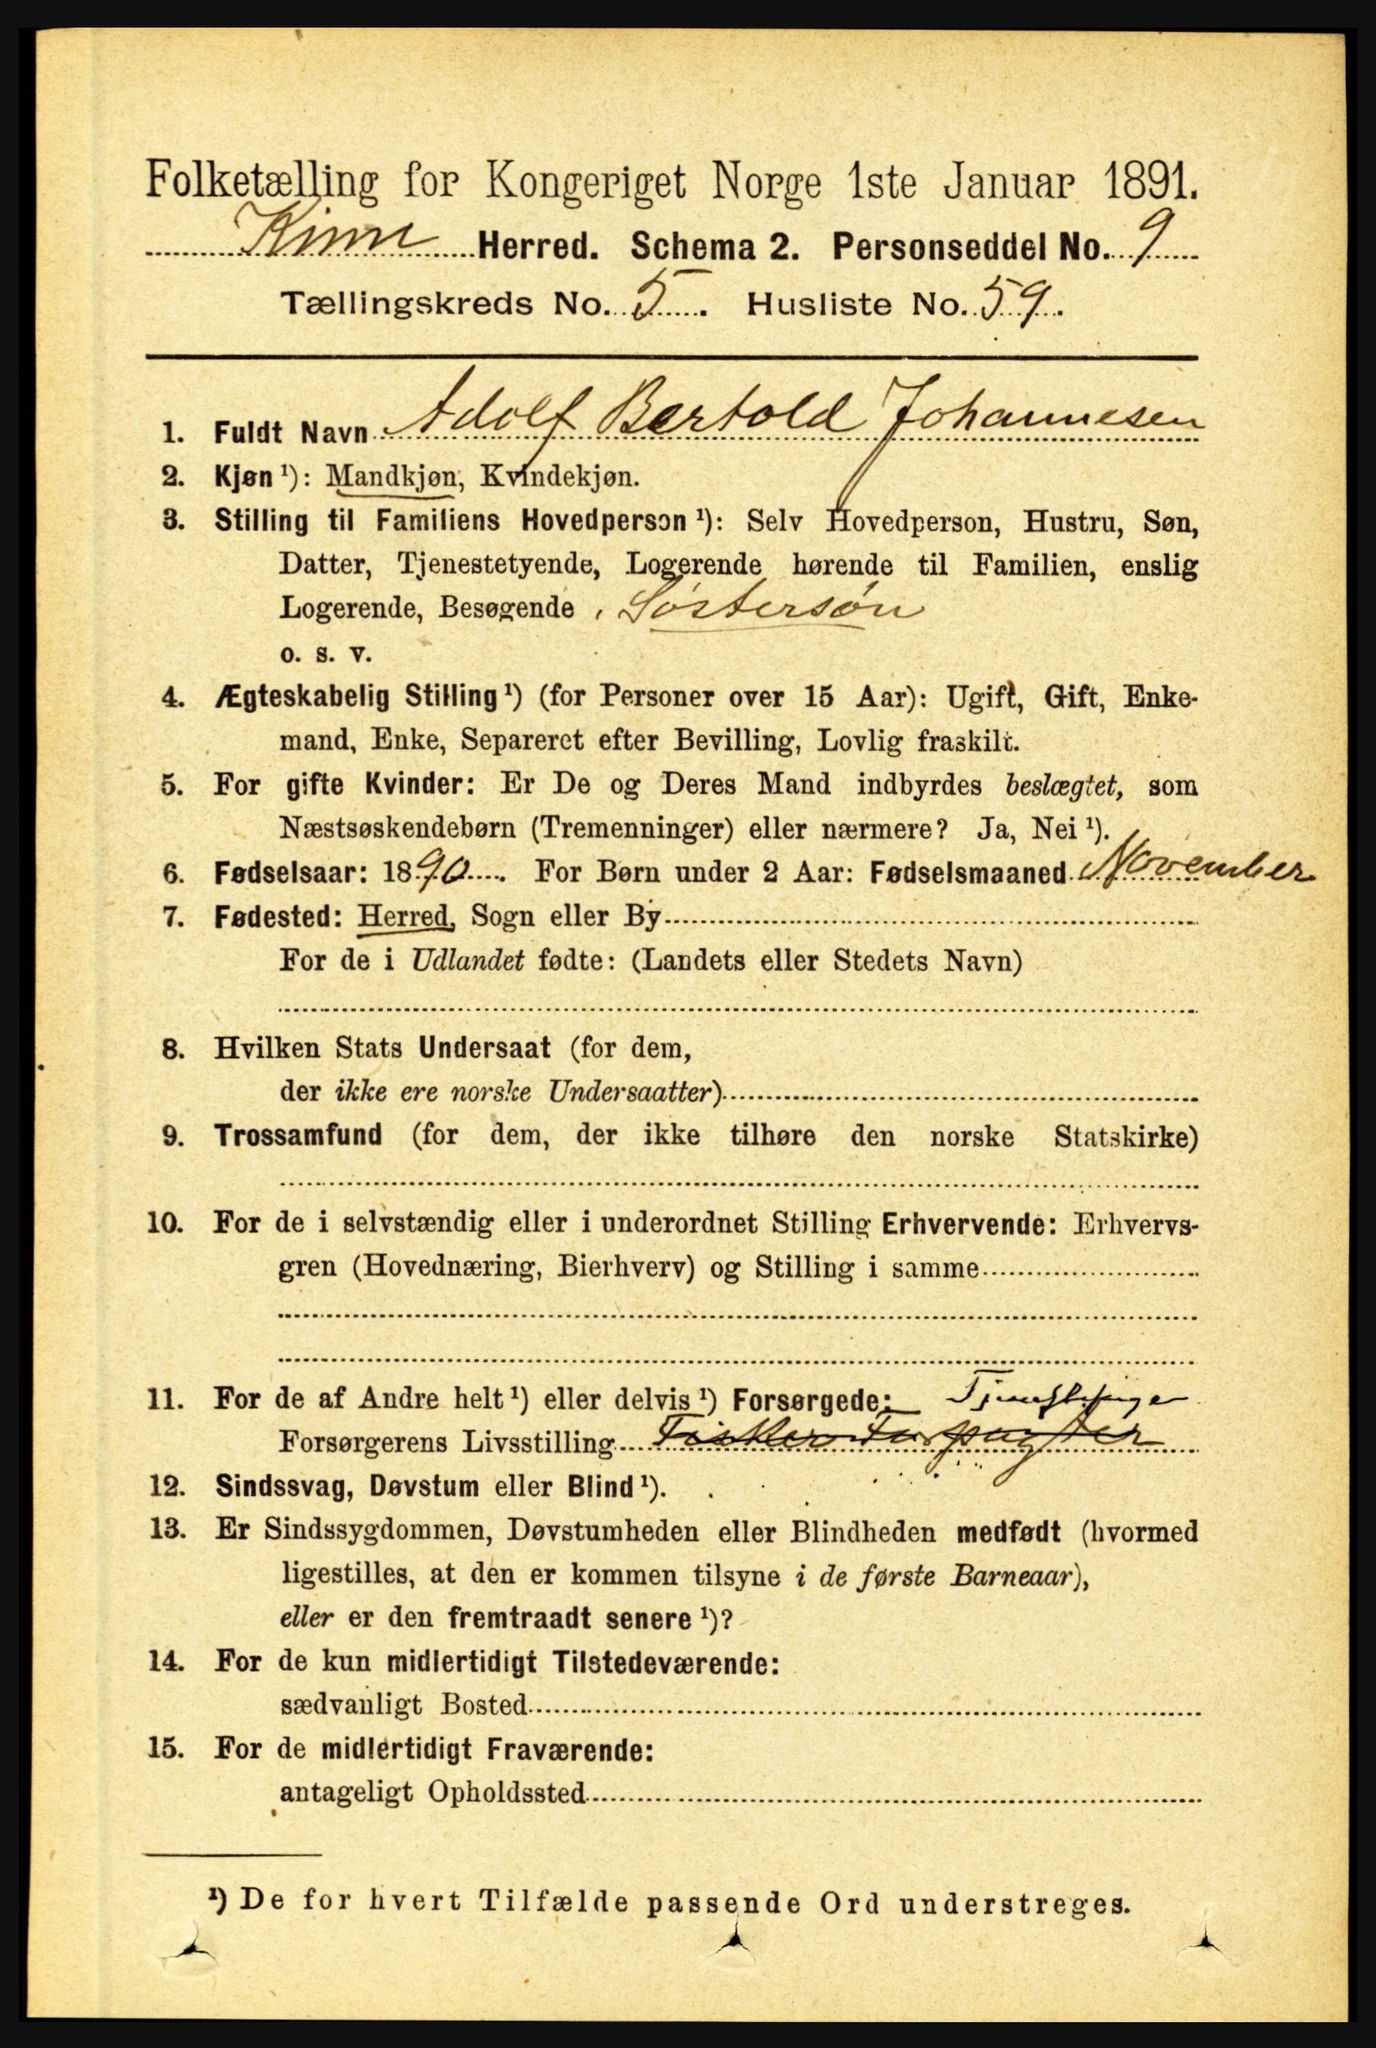 Folketælling for Kongeriget Norge 1ste Januar 1891.
Kinn Herred. Schema 2. Personseddel No. 9
Tællingskreds No. 5. Husliste No. 59.
1. Fuldt Navn Adolf Bertold Johannesen
2. Kjøn ¹): Mandkjøn, Kvindekjøn.
3. Stilling til Familiens Hovedperson ¹): Selv Hovedperson, Hustru, Søn,
Datter, Tjenestetyende, Logerende hørende til Familien, enslig
Logerende, Besøgende, Søstersøn
o. s. v.
4. Ægteskabelig Stilling ¹) (for Personer over 15 Aar): Ugift, Gift, Enke-
mand, Enke, Separeret efter Bevilling, Lovlig fraskilt.
5. For gifte Kvinder: Er De og Deres Mand indbyrdes beslægtet, som
Næstsøskendebørn (Tremenninger) eller nærmere? Ja, Nei ¹).
6. Fødselsaar: 1890. For Børn under 2 Aar: Fødselsmaaned November
7. Fødested: Herred, Sogn eller By
For de i Udlandet fødte: (Landets eller Stedets Navn)
8. Hvilken Stats Undersaat (for dem,
der ikke ere norske Undersaatter)
9. Trossamfund (for dem, der ikke tilhøre den norske Statskirke)
10. For de i selvstændig eller i underordnet Stilling Erhvervende: Erhvervs-
gren (Hovednæring, Bierhverv) og Stilling i samme
11. For de af Andre helt ¹) eller delvis ¹) Forsørgede:
Forsørgerens Livsstilling Fisker
12. Sindssvag, Døvstum eller Blind ¹).
13. Er Sindssygdommen, Døvstumheden eller Blindheden medfødt (hvormed
ligestilles, at den er kommen tilsyne i de første Barneaar),
eller er den fremtraadt senere ¹)?
14. For de kun midlertidigt Tilstedeværende:
sædvanligt Bosted
15. For de midlertidigt Fraværende:
antageligt Opholdssted
¹) De for hvert Tilfælde passende Ord understreges.